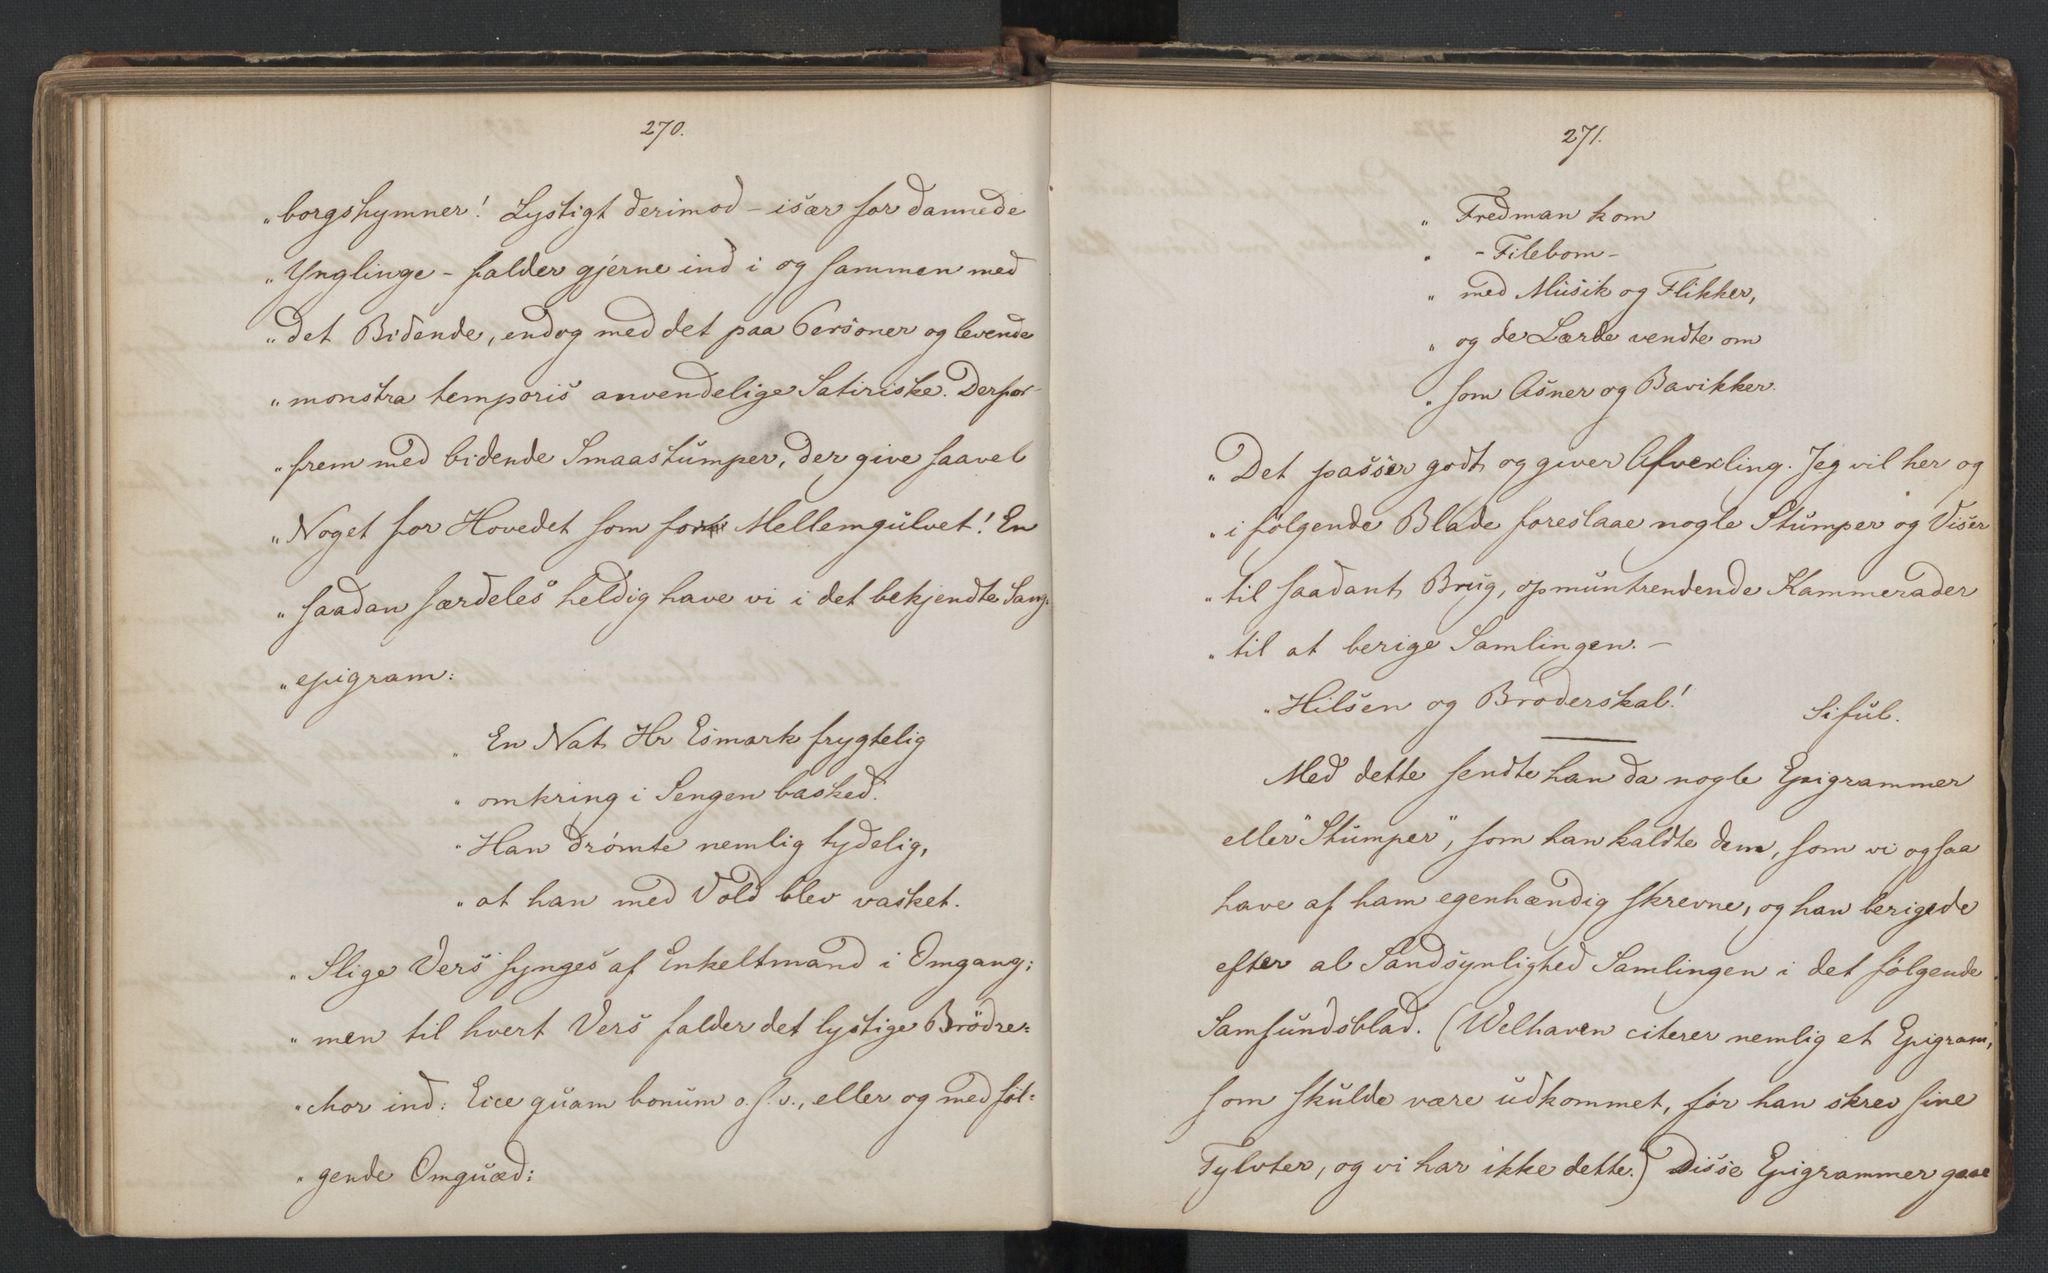 270.
„borgshymner! Lystigt derimod – især for dannede
„Ynglinge – falder gjerne ind i og sammen med
„det Bidende, endog med det paa Personer og levende
„monstra temporis anvendelige Satiriske. Derfor
„frem med bidende Smaastumper, der give saavel
„Noget for Hovedet som for Mellemgulvet! En
„saadan særdeles heldig have vi i det bekjendte Sang-
„epigram:
„En Nat Hr Esmark frygtelig
„omkring i Sengen basked.
„Han drømte nemlig tydelig,
„at han med Vold blev vasket.
„Slige Vers synges af Enkeltmand i Omgang;
„men til hvert Vers falder det lystige Brödre-
„chor ind: Ecce quam bonum o.s.v., eller og med föl-
„gende Omquæd:
271.
„Fredman kom
„– Filebom –
„med Musik og Flikker,
„og de Lærde vendte om
„som Asner og Bavikker.
„Det passer godt og giver Afvexling. Jeg vil her og
„i følgende Blade foreslaae nogle Stumper og Viser
„til saadant Brug, opmuntrendende Kammerader
„til at berige Samlingen. –
„Hilsen og Broderskal!
Siful.
Med dette sendte han da nogle Epigrammer
eller "Stumper", som han kaldte dem, som vi ogsaa
have af ham egenhændig skrevne, og han berigede
efter al Sandsynlighed Samlingen i det følgende
Samfundsblad. (Welhaven citerer nemlig et Epigram,
som skulde være udkommet, før han skrev sine
Tylvter, og vi har ikke dette.) Disse Epigrammer gaae